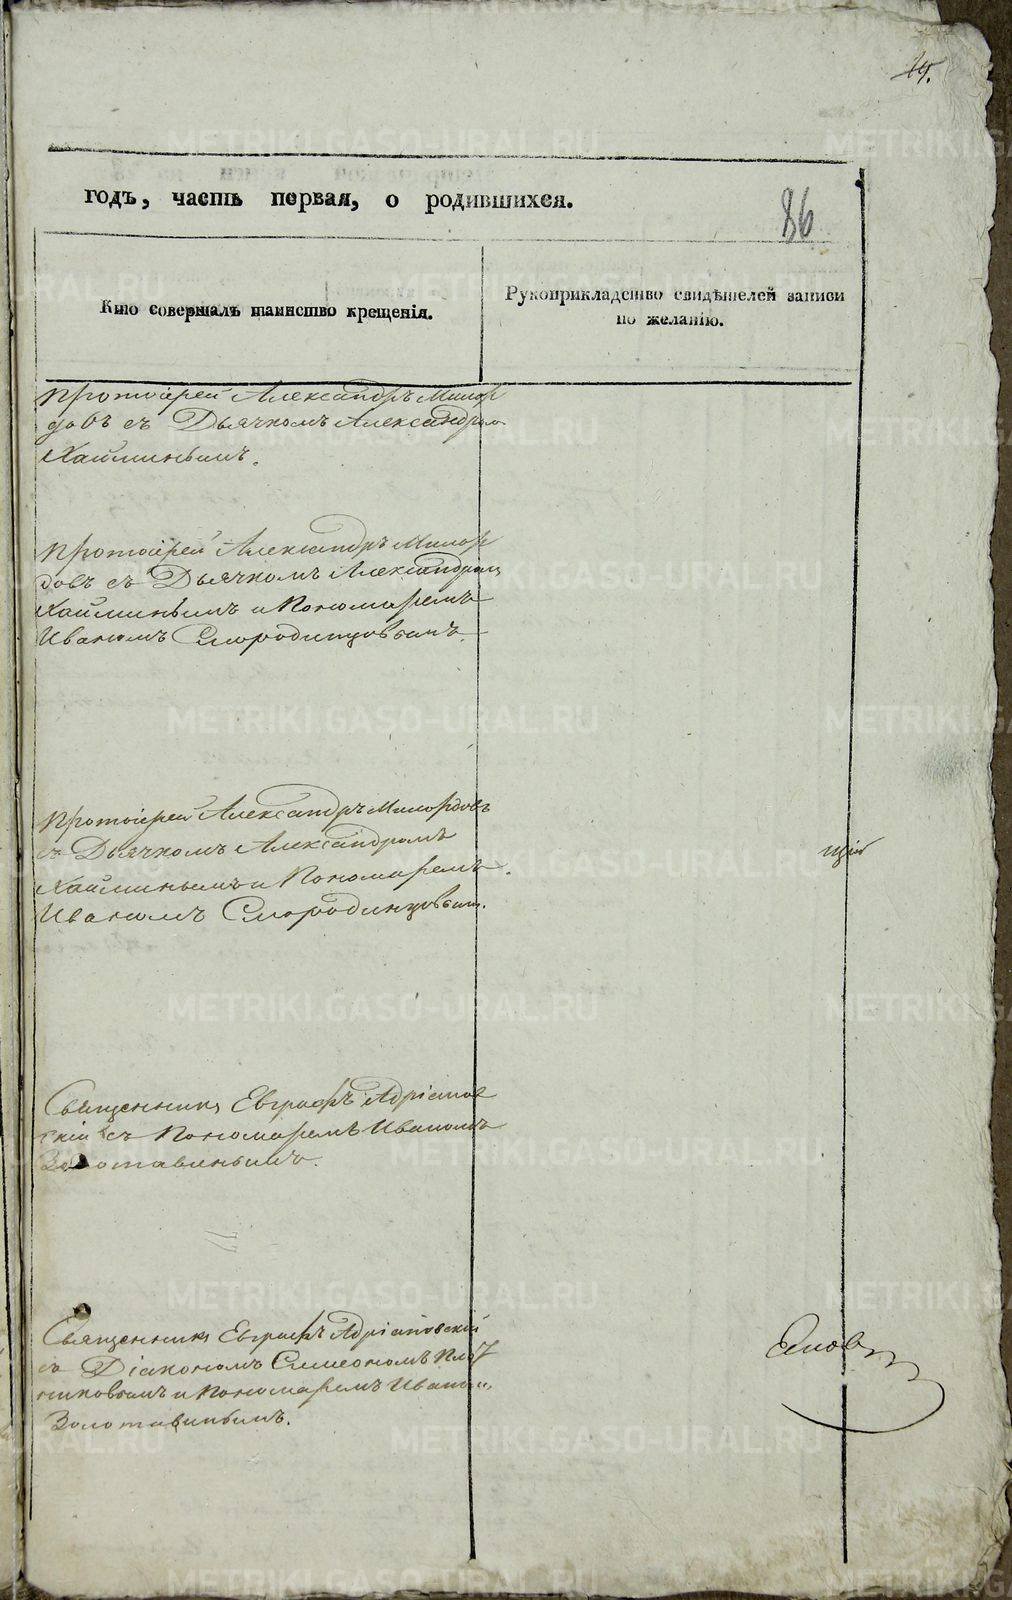 14.
годъ, часть первая, о родившихся.
86
Кто совершалъ таинство крещенія.
Рукоприкладство свидѣтелей записи
по желанію.
Протоіерей Александръ Милор
довъ съ Дьячкомъ Александромъ
Хайминымъ.
Протоіерей Александръ Милор
довъ съ Дьячкомъ Александромъ
Хайминымъ и Пономаремъ
Иваномъ Смородинцовымъ.
Протоіерей Александръ Милордовъ
съ Дьячкомъ Александромъ
Хайминымъ и Пономаремъ
Иваномъ Смородинцовым.
щій
Священникъ Евграфъ Адріанов
скій съ Пономаремъ Иваномъ
Золотавинымъ.
Священникъ Евграфъ Адріановскій
съ Діакономъ Симеономъ Плот
никовымъ и Пономаремъ Иваном
Золотавинымъ.
METRIKI.GASO-URAL.RU